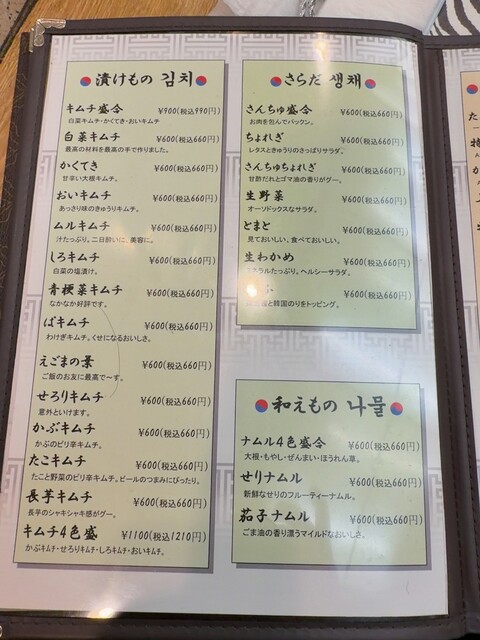 漬けもの 김치
キムチ盛合 ¥900(税込990円)
白菜キムチ・かくてき・おいキムチ
白菜キムチ ¥600(税込660円)
最高の材料を最高の手で作りました。
かくてき ¥600(税込660円)
甘辛い大根キムチ。
おいキムチ ¥600(税込660円)
あっさり味のきゅうりキムチ。
ムルキムチ ¥600(税込660円)
汁たっぷり。二日酔いに、美容に。
しろキムチ ¥600(税込660円)
白菜の塩漬け。
青梗菜キムチ ¥600(税込660円)
なかなか好評です。
ぱキムチ ¥600(税込660円)
わけぎキムチ。くせになるおいしさ。
えごまの葉 ¥600(税込660円)
ご飯のお友に最高で〜す。
せろりキムチ ¥600(税込660円)
意外といけます。
かぶキムチ ¥600(税込660円)
かぶのピリ辛キムチ。
たこキムチ ¥600(税込660円)
たこと野菜のピリ辛キムチ。ビールのつまみにぴったり。
長芋キムチ ¥600(税込660円)
長芋のシャキシャキ感がグー。
キムチ4色盛 ¥1100(税込1210円)
かぶキムチ・せろりキムチ・しろキムチ・おいキムチ。
さらだ 생채
さんちゅ盛合 ¥600(税込660円)
お肉を包んでパックン。
ちょれぎ ¥600(税込660円)
レタスときゅうりのさっぱりサラダ。
さんちゅちょれぎ ¥600(税込660円)
甘酢だれとゴマ油の香りがグー。
生野菜 ¥600(税込660円)
オーソドックスなサラダ。
とまと ¥600(税込660円)
見ておいしい、食べておいしい。
生わかめ ¥600(税込660円)
ミネラルたっぷり。ヘルシーサラダ。
¥600(税込660円)
と韓国のりをトッピング。
和えもの 나물
ナムル4色盛合 ¥600(税込660円)
大根・もやし・ぜんまい・ほうれん草。
せりナムル ¥600(税込660円)
新鮮なせりのフルーティーナムル。
茄子ナムル ¥600(税込660円)
ごま油の香り漂うマイルドなおいしさ。